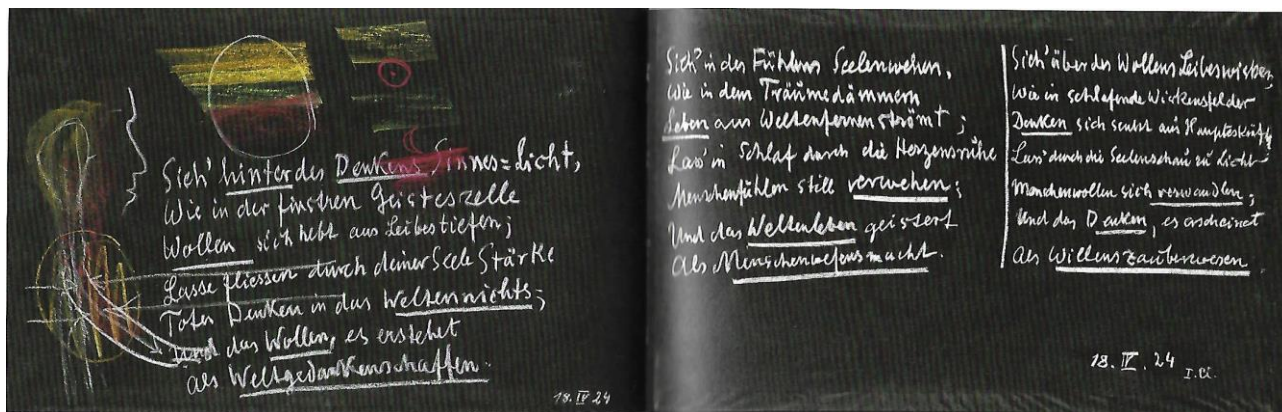 Sieh' hinter des Denkens Sinnes=Licht,
Wie in der finstren Geisteszelle
Wollen sich hebt aus Leibestiefen;
Lasse fliessen durch deiner Seele Stärke
Totes Denken in das Weltennichts;
Und das Wollen, es erstehet
als Weltgedankenschaffen.
18. IV 24
Sieh' in des Fühlens Seelenwehen,
Wie in dem Träumedämmern
Leben aus Weltenfernen strömt;
Lass' in Schlaf durch die Herzensruhe
Menschenfühlen still verwehen;
Und das Weltenleben geistert
als Menschenwesensmacht.
Sieh' über des Wollens Leibeswirken,
Wie in schlafende Wirkensfelder
Denken sich senkt aus Haupteskräften
Lass' durch die Seelenschau zu Licht
Menschenwollen sich verwandeln;
Und das Denken, es erscheinet
als Willenszauberwesen.
18. IV. 24